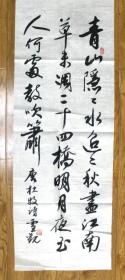 青山隱〻水迢〻秋盡江南
草未凋二十四橋明月夜玉
人何處教吹簫 唐杜牧詩